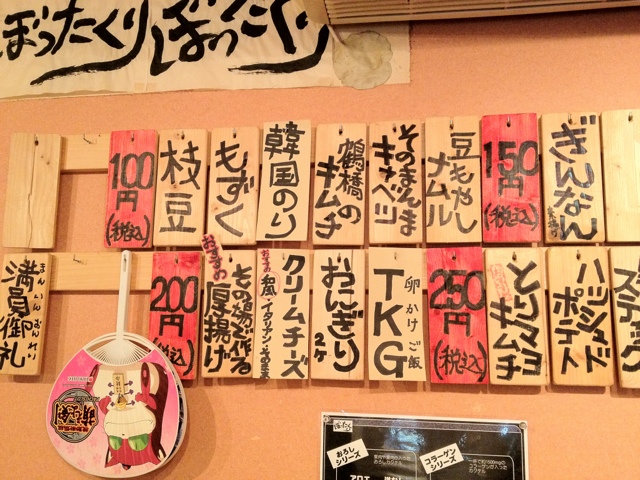 ぼったくり
ぼったくり
100円(税込)
枝豆
もずく
韓国のり
鶴橋のキムチ
そのまんまキャベツ
豆もやしナムル
150円(税込)
ぎんなん
満員御礼
まんいんおんれい
200円(税込)
おすすめ
その場で作る厚揚げ
クリームチーズ
おにぎり2ケ
TKG
卵かけご飯
250円(税込)
とりマヨキムチ
ハッシュドポテト
スティック
ぼったくり
おろしシリーズ
コラーゲンシリーズ